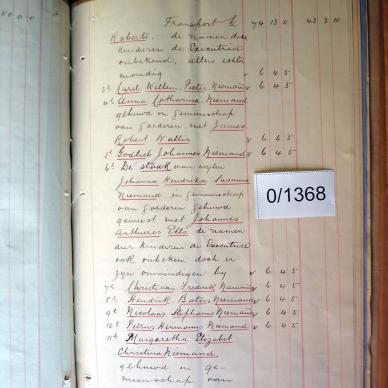 000
Transport £ 74 13 0 43 2 10
Roberts. de namen dier
kinderen de Executrice
onbekend, allen echter
mondig v 6 4 5
3e Carel Willem Pieter Niemand v 6 4 5
4e Anna Catharina Niemand
gehuwd in gemeenschap
van goederen met James
Robert Wallis v 6 4 5
5e Godlieb Johannes Niemand v 6 4 5
6e De staak van wijlen
Johanna Hendrika Susanna
Niemand in gemeenschap
van goederen gehuwd
geweest met Johannes
Els de namen
dier kinderen de Executrice
ook onbekend doch er
zijn onmondigen bij v 6 4 5
7e Christiaan Fredrik Niemand v 6 4 5
8e Hendrik Niemand v 6 4 5
9e Nicolaas Stephanus Niemand v 6 4 5
10e Petrus Hermanus Niemand v 6 4 5
11e Margaretha Elizabet
Christina Niemand
gehuwd in ge-
meenschap van
0/1368